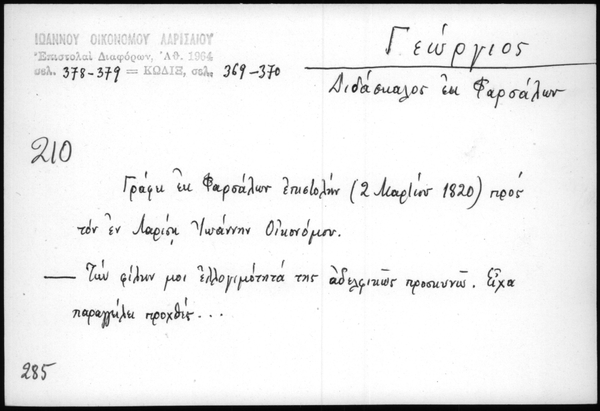 ΙΩΑΝΝΟΥ ΟΙΚΟΝΟΜΟΥ ΛΑΡΙΣΑΙΟΥ
Ἐπιστολαὶ Διαφόρων, Ἀθ. 1964
σελ. 378-379 = ΚΩΔΙΞ, σελ. 369-370
Γεώργιος
Διδάσκαλος ἐκ Φαρσάλων
210
Γράφει ἐκ Φαρσάλων ἐπιστολήν (2 Μαρτίου 1820) πρός
τόν ἐν Λαρίσῃ Ἰωάννην Οἰκονόμου.
— Τήν φίλην μοι ἐλλογιμότητά της ἀδελφικῶς προσκυνῶ. Εἶχα
παραγγείλει προχθές...
285